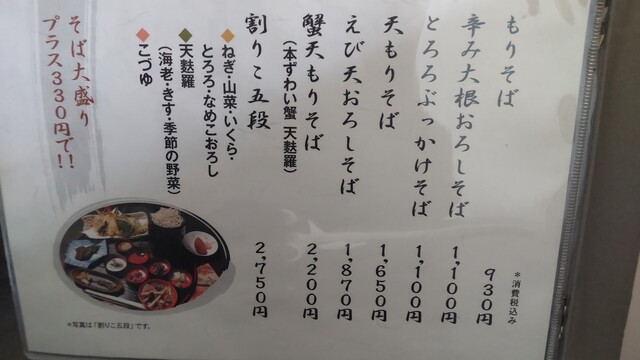 もりそば 930円
*消費税込み
辛み大根おろしそば 1,100円
とろろぶっかけそば 1,100円
天もりそば 1,650円
えび天おろしそば 1,870円
蟹天もりそば 2,200円
(本ずわい蟹 天麩羅)
割りこ五段 2,750円
◆ねぎ・山菜・いくら・
とろろ・なめこおろし
◆天麩羅
(海老・きす・季節の野菜)
◆こづゆ
*写真は「割りこ五段」です。
そば大盛り
プラス330円で!!